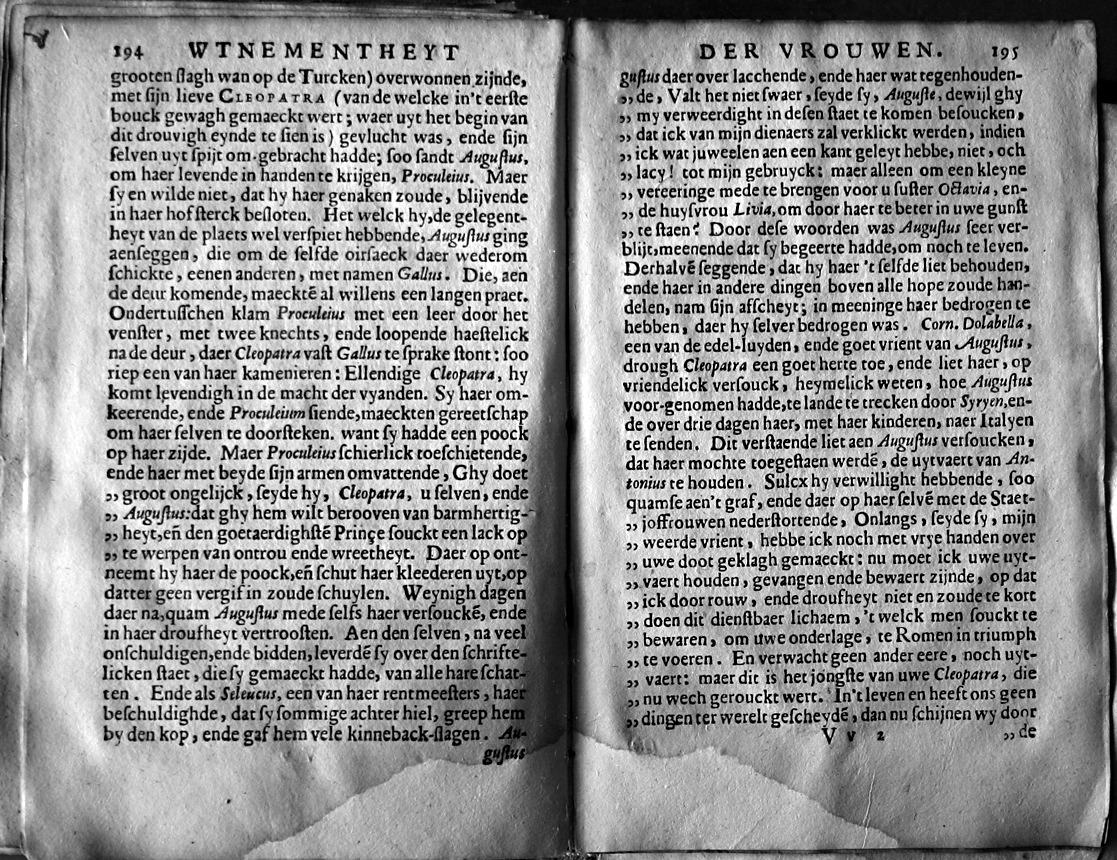 194 WTNEMENTHEYT
grooten ſlagh wan op de Turcken) overwonnen zijnde,
met ſijn lieve CLEOPATRA (van de welcke in't eerſte
bouck gewagh gemaeckt wert; waer uyt het begin van
dit drouvigh eynde te ſien is) gevlucht was, ende ſijn
ſelven uyt ſpijt om-gebracht hadde; ſoo ſandt Auguſtus,
om haer levende in handen te krijgen, Proculeius. Maer
ſy en wilde niet, dat hy haer genaken zoude, blijvende
in haer hof ſterck beſloten. Het welck hy, de gelegent-
heyt van de plaets wel verſpiet hebbende, Auguſtus ging
aenſeggen, die om de ſelfde oirſaeck daer wederom
ſchickte, eenen anderen, met namen Gallus. Die, aen
de deur komende, maeckte al willens een langen praet.
Ondertuſſchen klam Proculeius met een leer door het
venſter, met twee knechts, ende loopende haeſtelick
na de deur, daer Cleopatra vaſt Gallus te ſprake ſtont: ſoo
riep een van haer kamenieren: Ellendige Cleopatra, hy
komt levendigh in de macht der vyanden. Sy haer om-
keerende, ende Proculeium ſiende, maeckten gereetſchap
om haer ſelven te doorſteken. want ſy hadde een poock
op haer zijde. Maer Proculeius ſchierlick toeſchietende,
ende haer met beyde ſijn armen omvattende, Ghy doet
,, groot ongelijck, ſeyde hy, Cleopatra, u ſelven, ende
,, Auguſtus: dat ghy hem wilt berooven van barmhertig-
,, heyt, eñ den goetaerdighſtē Prinçe ſouckt een lack op
,, te werpen van ontrou ende wreetheyt. Daer op ont-
neemt hy haer de poock, eñ ſchut haer kleederen uyt, op
datter geen vergif in zoude ſchuylen. Weynigh dagen
daer na, quam Auguſtus mede ſelfs haer verſouckē, ende
in haer droufheyt vertrooſten. Aen den ſelven, na veel
onſchuldigen, ende bidden, leverdē ſy over den ſchrifte-
licken ſtaet, die ſy gemaeckt hadde, van alle hare ſchat-
ten. Ende als Seleucus, een van haer rentmeeſters, haer
beſchuldighde, dat ſy ſommige achter hiel, greep hem
by den kop, ende gaf hem vele kinneback-ſlagen. Au-
guſtus
DER VROUWEN. 195
guſtus daer over lacchende, ende haer wat tegenhouden-
,, de, Valt het niet ſwaer, ſeyde ſy, Auguſte, dewijl ghy
,, my verweerdight in deſen ſtaet te komen beſoucken,
,, dat ick van mijn dienaers zal verklickt werden, indien
,, ick wat juweelen aen een kant geleyt hebbe, niet, och
,, lacy! tot mijn gebruyck: maer alleen om een kleyne
,, vereeringe mede te brengen voor u ſuſter Octavia, en-
,, de huyſvrou Livia, om door haer te beter in uwe gunſt
,, te ſtaen? Door deſe woorden was Auguſtus ſeer ver-
blijt, meenende dat ſy begeerte hadde, om noch te leven.
Derhalvē ſeggende, dat hy haer 't ſelfde liet behouden,
ende haer in andere dingen boven alle hope zoude han-
delen, nam ſijn affcheyt; in meeninge haer bedrogen te
hebben, daer hy ſelver bedrogen was. Corn. Dolabella,
een van de edel-luyden, ende goet vrient van Auguſtus,
drough Cleopatra een goet herte toe, ende liet haer, op
vriendelick verſouck, heymelick weten, hoe Auguſtus
voor-genomen hadde, te lande te trecken door Syryen, en-
de over drie dagen haer, met haer kinderen, naer Italyen
te ſenden. Dit verſtaende liet aen Auguſtus verſoucken,
dat haer mochte toegeſtaen werdē, de uytvaert van An-
tonius te houden. Sulcx hy verwillight hebbende, ſoo
quamſe aen't graf, ende daer op haer ſelvē met de Staet-
,, joffrouwen nederſtortende, Onlangs, ſeyde ſy, mijn
,, weerde vrient, hebbe ick noch met vrye handen over
,, uwe doot geklagh gemaeckt: nu moet ick uwe uyt-
,, vaert houden, gevangen ende bewaert zijnde, op dat
,, ick door rouw, ende droufheyt niet en zoude te kort
,, doen dit dienſtbaer lichaem, 't welck men ſouckt te
,, bewaren, om uwe onderlage, te Romen in triumph
,, te voeren. En verwacht geen ander eere, noch uyt-
,, vaert: maer dit is het jongſte van uwe Cleopatra, die
,, nu wech gerouckt wert. In't leven en heeft ons geen
,, dingen ter werelt geſcheydē, dan nu ſchijnen wy door
V v 2 ,, de